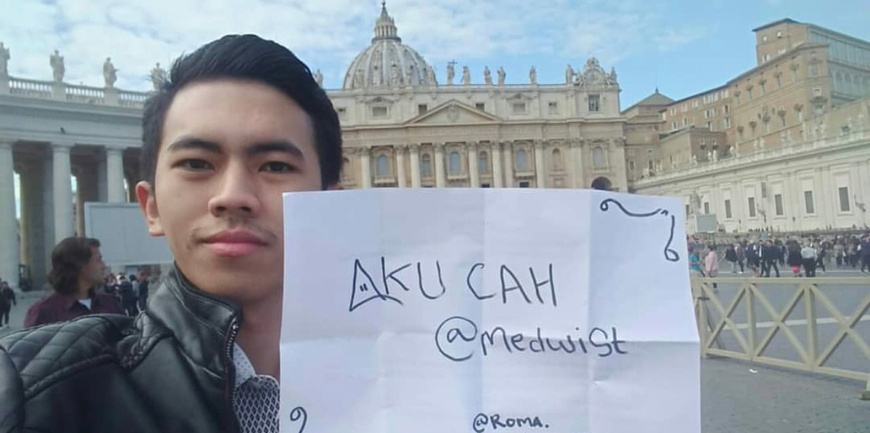 AKU CAH
@Medwist
@ROMA.